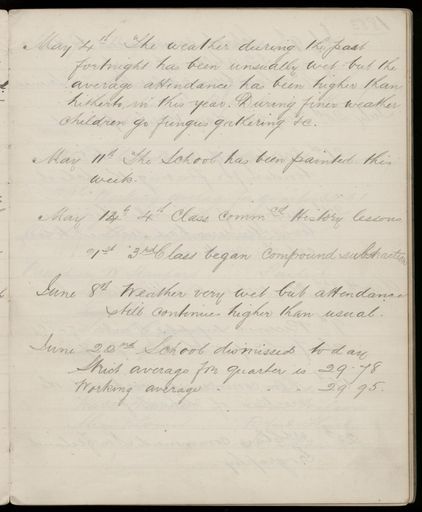 May 4th The weather during the past
fortnight has been unsually wet but the
average attendance has been higher than
hitherto in this year. During finer weather
children go fungus gathering &c.
May 11th The School has been painted this
week.
May 4th Class commcd History lessons
21st 3rd Class began compound subtraction
June 8th Weather very wet but attendance
still continues higher than usual.
June School dismissed to day
Strict average for quarter is 29.78
Working average . . . 29.95.